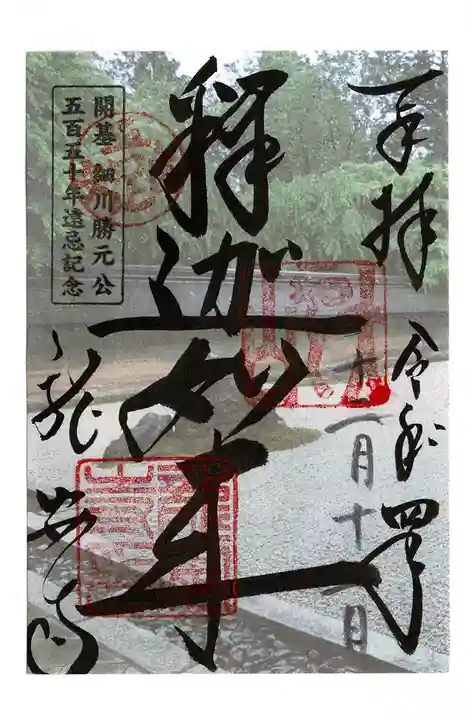 奉拝 令和四年
釋迦如来
開基 細川勝元公
五百五十年遠忌記念
龍安寺